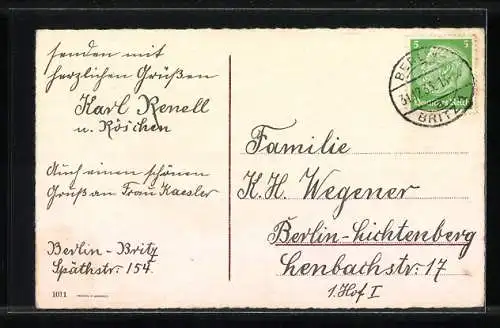 senden mit
herzlichen Grüßen
Karl Renell
u. Röschen
Auch einen schönen
Gruß an Frau Kaesler
Berlin-Britz
Späthstr. 154
1011
Familie
K. H. Wegener
Berlin-Lichtenberg
Lenbachstr. 17
1. Hof I
5 5
Deutsches Reich
BERLIN
BRITZ